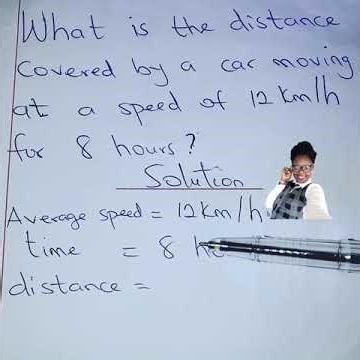 What is the distance
covered by a car moving
at a speed of 12 km/h
for 8 hours?
Solution
Average speed = 12km/h
time = 8
distance =